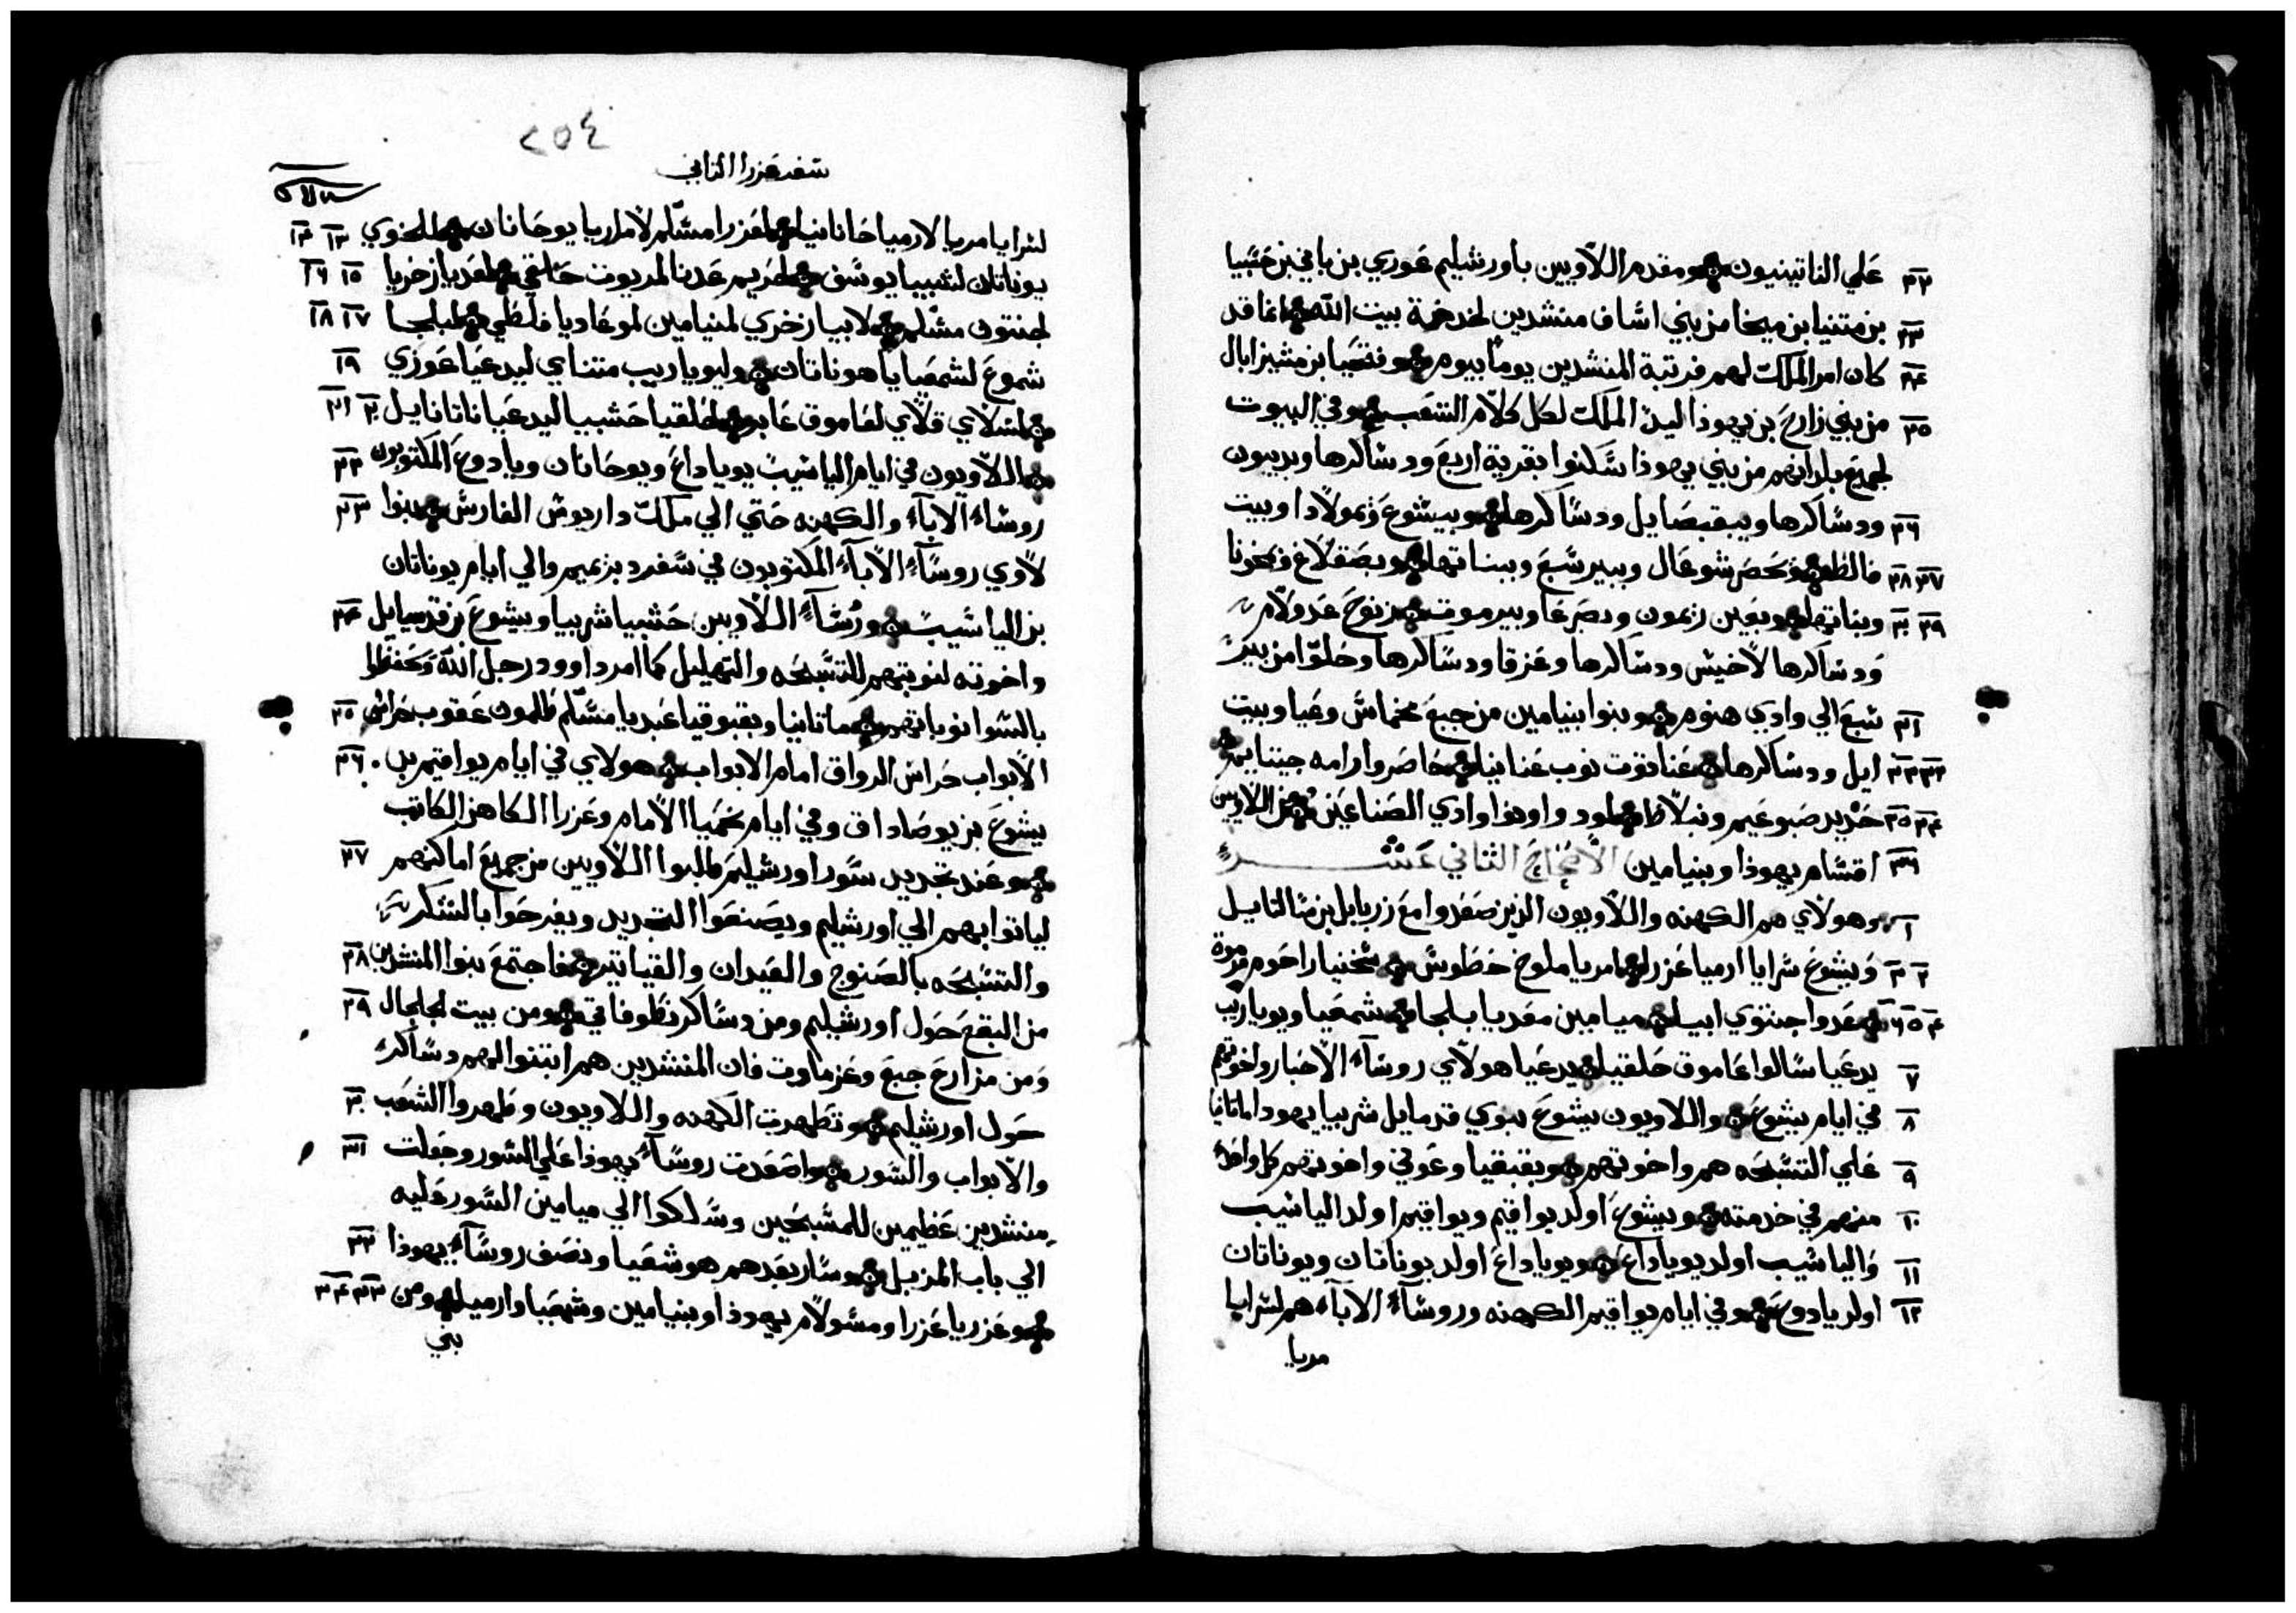 ٢٢ علي الناتينيون ومقدم اللاويين باورشليم عوزي بن باني بن حشبيا
٢٣ بن متنيا بن ميخا من بني اساف منشدين لخدمة بيت الله انما قد
٢٤ كان امر الملك لهم فرتبة المنشدين يوماً بيوم وفتحيا بن مشيزابال
٢٥ من بني زارح بن يهوذا اليد الملك لكل كلام الشعب وفي البيوت
لجميع بلدانهم من بني يهوذا سكنوا بقرية اربع ودساكرها وبديبون
٢٦ ودساكرها وبيقبصايل ودساكرها وبيشوع وبمولادا وبيت
٢٧ ٢٨ فالط وبحصر شوعال وببير سبع وببناتها وبصقلاغ وبمخونا
٢٩ ٣٠ وبناتها وبعين رمون وبصرعا وبيرموت زنوح عدولام
ودساكرها لاخيش ودساكرها وعزقا ودساكرها وحلوا من بير
٣١ سبع الي وادي هنوم وبنوا بنيامين من جبع مخماس وعيا وبيت
٣٢ ٣٣ ايل ودساكرها عناتوت نوب عنانيا حاصور ارامه جيتايم
٣٤ ٣٥ حديد صبوعيم ونبلاط لود واونوا وادي الصناعين من اللاويين
٣٦ اقسام يهوذا وبنيامين الاصحاح الثاني عشر
١ وهولاي هم الكهنه واللاويون الذين صعدوا مع زربابل بن شالتايل
٢ ٣ ويشوع سرايا ارميا عزرا امريا ملوخ حطوش شخنيا راحوم مرموة
٤ ٥ ٦ عدوا جنتوي ابيا ميامين معديا بلجا شمعيا ويوياريب
٧ يدعيا سالوا عاموق حلقيا يدعيا هولاي روساء الاحبار واخوتهم
٨ في ايام يشوع واللاويون يشوع بنوي قدمايل شربيا يهودا ماتانيا
٩ علي التسبحه هم واخوتهم وبقبقيا وعوني واخوتهم كل واحد
١٠ منهم في خدمته ويشوع اولد يواقيم ويواقيم اولد الياشيب
١١ والياشيب اولد يوياداع ويوياداع اولد يوناتان ويوناتان
١٢ اولد يادوع وفي ايام يواقيم الكهنه وروساء الاباء هم لسرايا
مريا
٢٥٤
سفر عزرا الثاني
لسرايا مريا لارميا حانانيا لعزرا مشلم لاماريا يوحانان لملخوي ١٣ ١٤
يوناتان لشبيا يوسف لحريم عدنا لمريوت حلقي لعديا زخريا ١٥ ١٦
لجنتون مشلم لابيا زخري لمنيامين لموعاديا فلطي لبلجا ١٧ ١٨
شموع لشمعيا ياهوناتان وليوياريب متناي ليدعيا عوزي ١٩
لسلاي قلاي لعاموق عابر لحلقيا حشبيا ليدعيا ناتانايل ٢٠ ٢١
اللاويون في ايام الياشيب يوياداع ويوحانان ويادوع المكتوبون ٢٢
روساء الاباء والكهنه حتي الي ملك داريوش الفارسي بنوا ٢٣
لاوي روساء الاباء المكتوبون في سفر دبريميم والي ايام يوناتان
بن الياشيب ورُساء اللاويين حشبيا شربيا ويشوع بن قدمايل ٢٤
واخوته لنوبتهم للتسبحه والتهليل كما امر داوود رجل الله وحفظوا
بالسوا نوباتهم ماتانيا وبقبوقيا عبديا مشلم طلمون عقوب حراس ٢٥
الابواب حراس الرواق امام الابواب هولاي في ايام يواقيم بن ٢٦
يشوع بن يوصاداق وفي ايام نحميا الامام وعزرا الكاهن الكاتب
وعند تجديد سور اورشليم طلبوا اللاويين من جميع اماكنهم ٢٧
لياتوا بهم الي اورشليم ويصنعوا التجديد ويفرحوا بالشكر
والتسبحه بالصنوج والعيدان والقياتير فاجتمع بنوا المنشدين ٢٨
من البقع حول اورشليم ومن دساكر نطوفاتي ومن بيت لجلجال ٢٩
ومن مزارع جبع وعزماوت فان المنشدين هم ابتنوا لهم دساكر
حول اورشليم وتطهرت الكهنه واللاويون وطهروا الشعب ٣٠
والابواب والسور واصعدت روساء يهوذا علي السور وجعلت ٣١
منشدين عظيمين للمسبحين وسلكوا الي ميامين السور عليه
الي باب المزبل وسار بعدهم هوشعيا ونصف روساء يهوذا ٣٢
وعزريا عزرا ومشولام يهوذا وبنيامين وشمعيا وارميا ومن ٣٣ ٣٤
بني